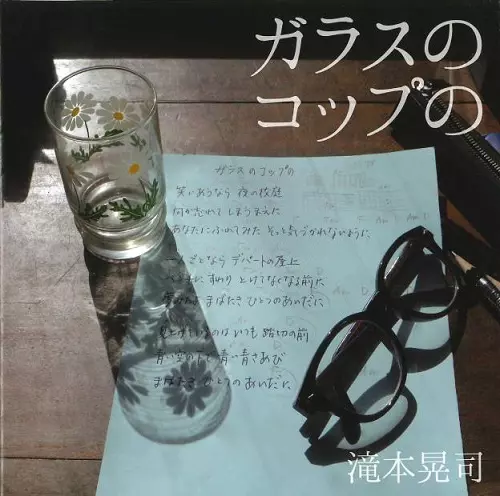 ガラスの
コップの
ガラスのコップの
笑いあうなら 夜の校庭
何か忘れて しまうまえに
あなたにふれてみた そっと気づかれないように
デパートの屋上
すわり とけてなくなる前に
まばたき ひとつのあいだに
いつも 踏切の前
青い空の下で 青い青さあび
まばたき ひとつのあいだに
滝本晃司